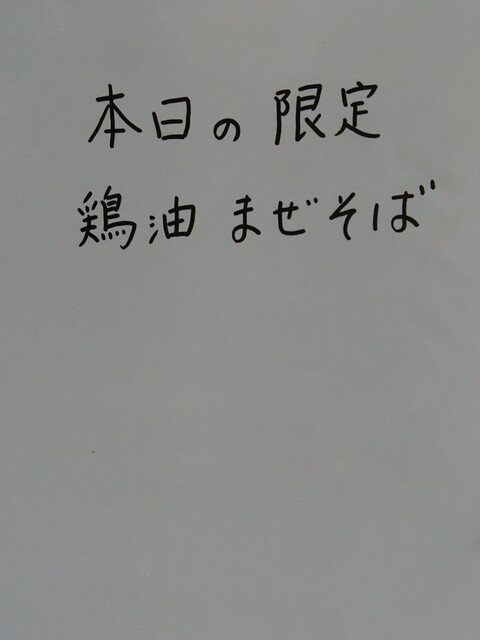 本日の限定
鶏油まぜそば